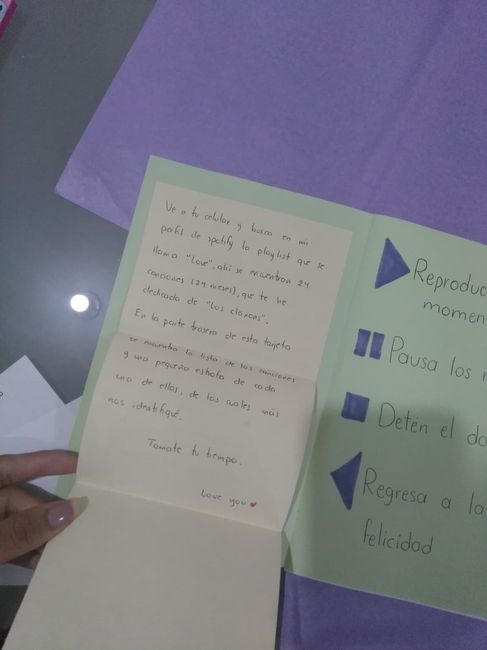 Ve a tu celular y busca en mi
perfil de spotify la playlist que se
llama "Love", ahi se encuentran 24
canciones (24 meses), que te he
dedicado de "las clasicas".
En la parte trasera de esta tarjeta
se encuentra la lista de las canciones
y una pequeña estrofa de cada
una de ellas, de las cuales más
nos identifiqué.
Tomate tu tiempo.
Love you
Reproduc
momen
Pausa los
Detén el do
Regresa a la
felicidad